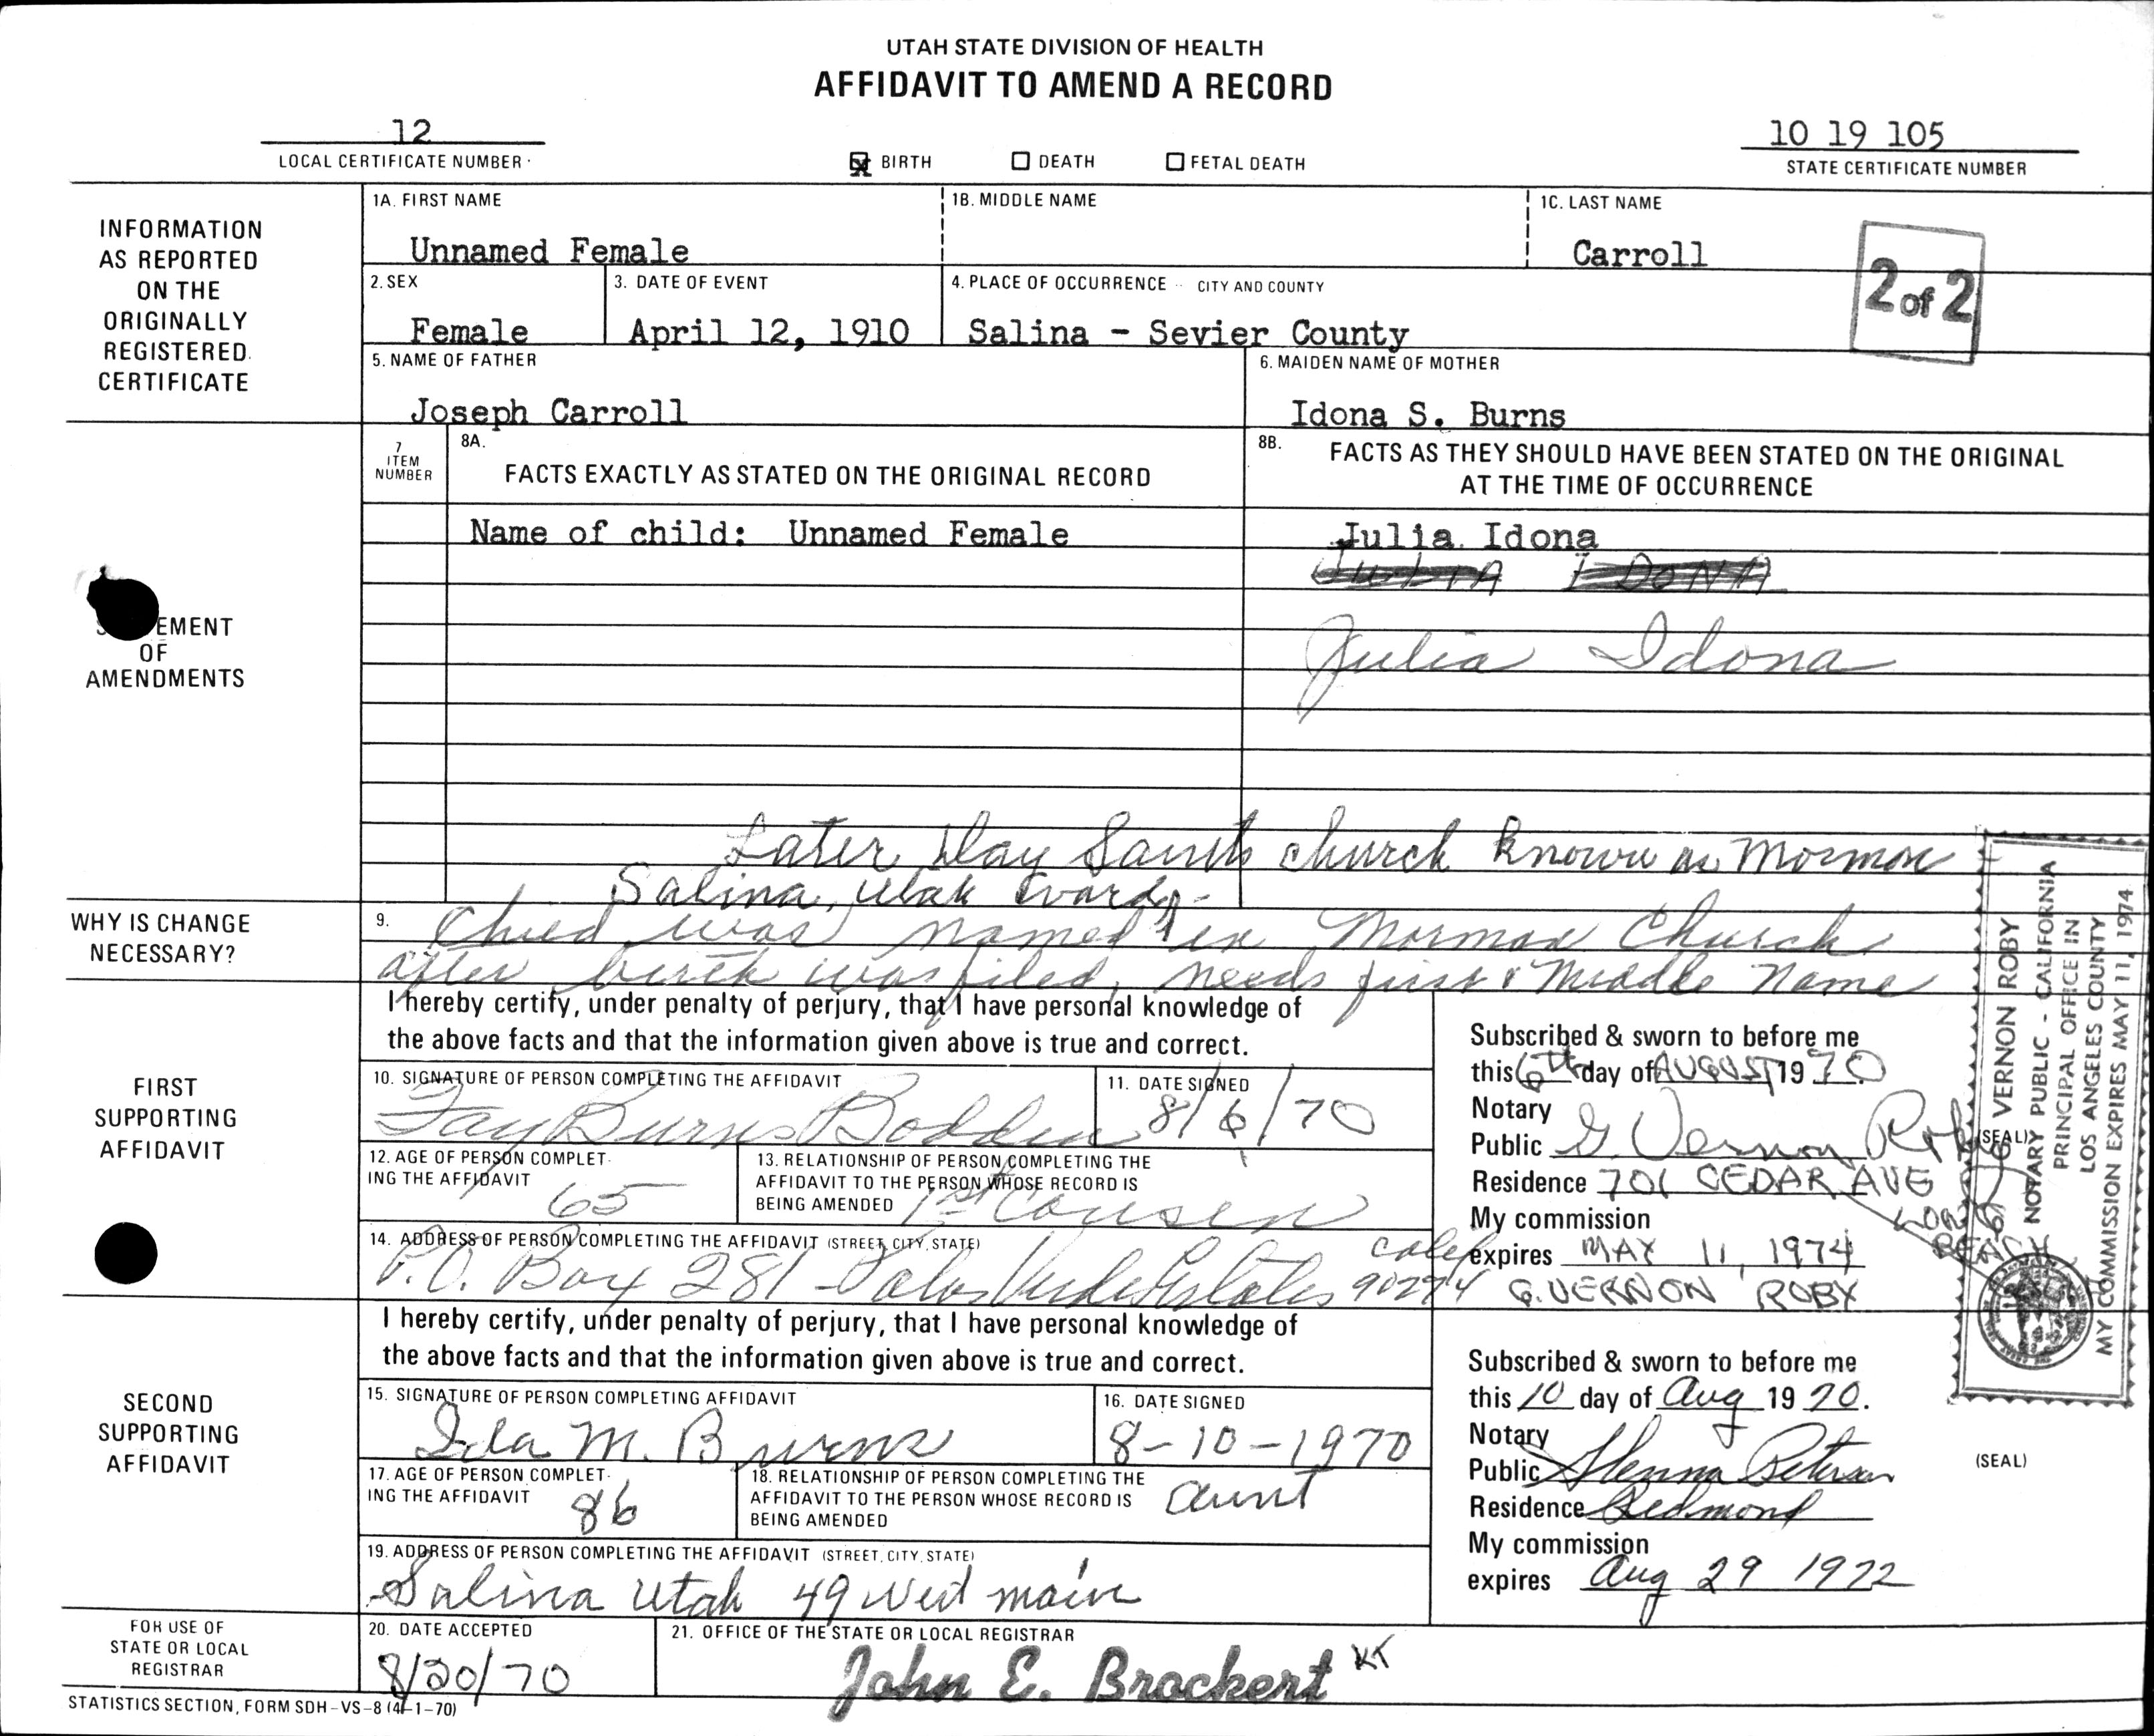 UTAH STATE DIVISION OF HEALTH
AFFIDAVIT TO AMEND A RECORD
12
LOCAL CERTIFICATE NUMBER
BIRTH DEATH FETAL DEATH
10 19 105
STATE CERTIFICATE NUMBER
INFORMATION
AS REPORTED
ON THE
ORIGINALLY
REGISTERED
CERTIFICATE
1A. FIRST NAME
Unnamed Female
1B. MIDDLE NAME
1C. LAST NAME
Carroll
2 of 2
2. SEX
Female
3. DATE OF EVENT
April 12, 1910
4. PLACE OF OCCURRENCE CITY AND COUNTY
Salina - Sevier County
5. NAME OF FATHER
Joseph Carroll
6. MAIDEN NAME OF MOTHER
Idona S. Burns
EMENT
OF
AMENDMENTS
7
ITEM
NUMBER
8A.
FACTS EXACTLY AS STATED ON THE ORIGINAL RECORD
Name of child: Unnamed Female
8B.
FACTS AS THEY SHOULD HAVE BEEN STATED ON THE ORIGINAL
AT THE TIME OF OCCURRENCE
Julia Idona
JULIA IDONA
Julia Idona
Later Day Saints church known as Mormon
Salina, Utah Ward
WHY IS CHANGE
NECESSARY?
9.
Child was named in Mormon Church
after birth was filed, needs first & Middle Name
FIRST
SUPPORTING
AFFIDAVIT
I hereby certify, under penalty of perjury, that I have personal knowledge of
the above facts and that the information given above is true and correct.
10. SIGNATURE OF PERSON COMPLETING THE AFFIDAVIT
Fay Burns Bodden
11. DATE SIGNED
8/6/70
12. AGE OF PERSON COMPLET-
ING THE AFFIDAVIT
65
13. RELATIONSHIP OF PERSON COMPLETING THE
AFFIDAVIT TO THE PERSON WHOSE RECORD IS
BEING AMENDED 1st Cousen
14. ADDRESS OF PERSON COMPLETING THE AFFIDAVIT (STREET, CITY, STATE)
P.O. Box 281 Palos Verde Estates Calif 90274
Subscribed & sworn to before me
this 6th day of AUGUST 1970
Notary
Public G. Vernon Roby
(SEAL)
Residence 701 CEDAR AVE
LONG
BEACH
My commission
expires MAY 11, 1974
G. VERNON ROBY
G VERNON ROBY
NOTARY PUBLIC - CALIFORNIA
PRINCIPAL OFFICE IN
LOS ANGELES COUNTY
MY COMMISSION EXPIRES MAY 11, 1974
SECOND
SUPPORTING
AFFIDAVIT
I hereby certify, under penalty of perjury, that I have personal knowledge of
the above facts and that the information given above is true and correct.
15. SIGNATURE OF PERSON COMPLETING AFFIDAVIT
Ida M. Burns
16. DATE SIGNED
8-10-1970
17. AGE OF PERSON COMPLET-
ING THE AFFIDAVIT
86
18. RELATIONSHIP OF PERSON COMPLETING THE
AFFIDAVIT TO THE PERSON WHOSE RECORD IS
BEING AMENDED
aunt
19. ADDRESS OF PERSON COMPLETING THE AFFIDAVIT (STREET, CITY, STATE)
Salina Utah 49 West main
Subscribed & sworn to before me
this 10 day of Aug 1970.
Notary
Public Peterson
(SEAL)
Residence Redmond
My commission
expires Aug 29 1972
FOR USE OF
STATE OR LOCAL
REGISTRAR
20. DATE ACCEPTED
8/20/70
21. OFFICE OF THE STATE OR LOCAL REGISTRAR
John E. Brockert KT
STATISTICS SECTION, FORM SDH-VS-8 (4-1-70)